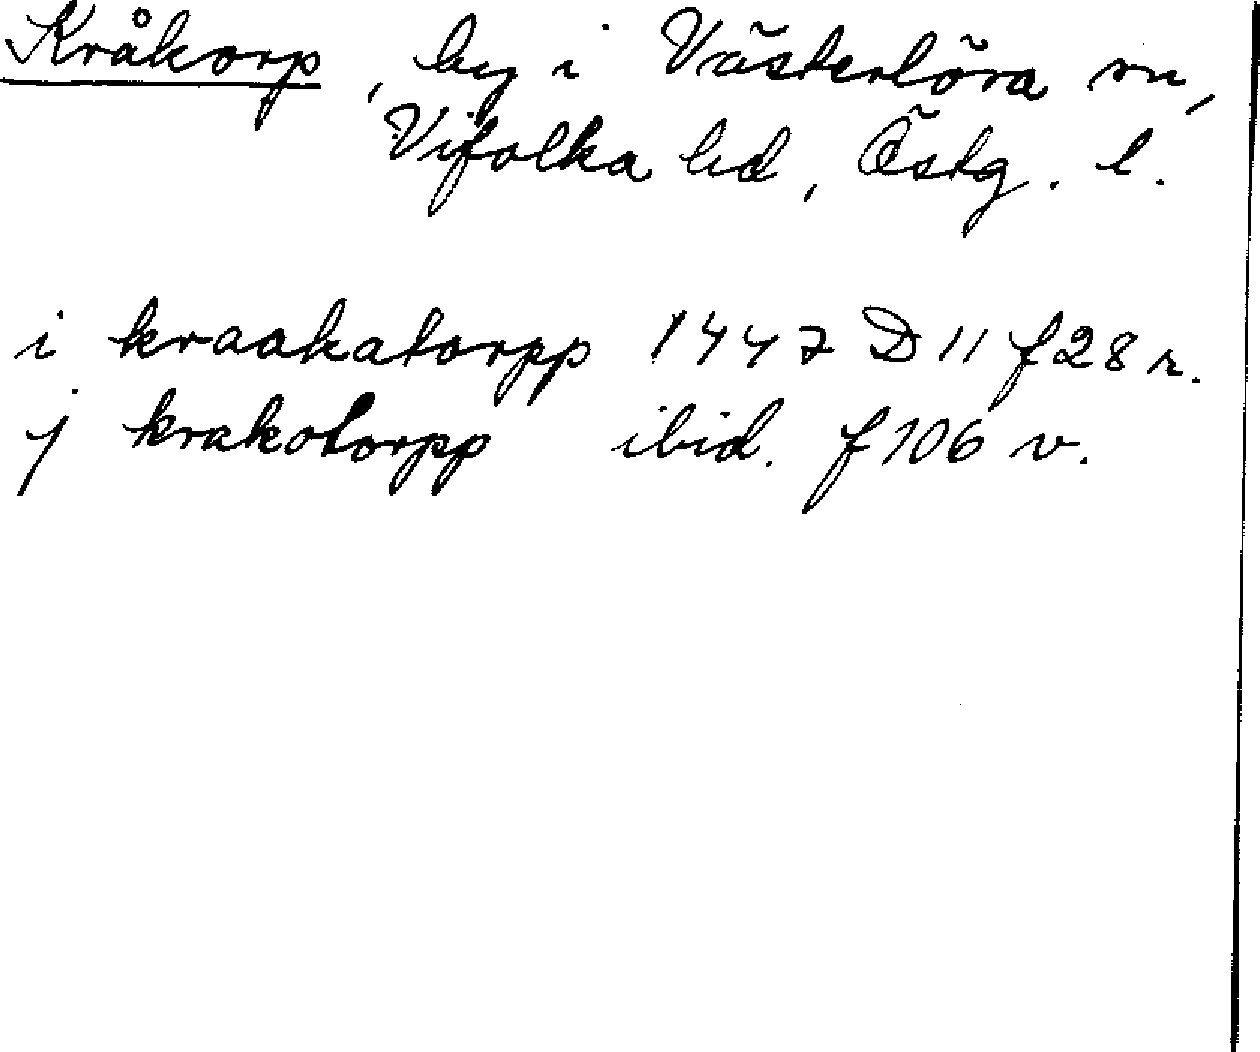 Kråkorp, by i Västerlösa sn,
Vifolka hd, Östg. l.
i kraakatorpp 1447 D 11 f 28 r.
j krakotorpp ibid. f 106 v.